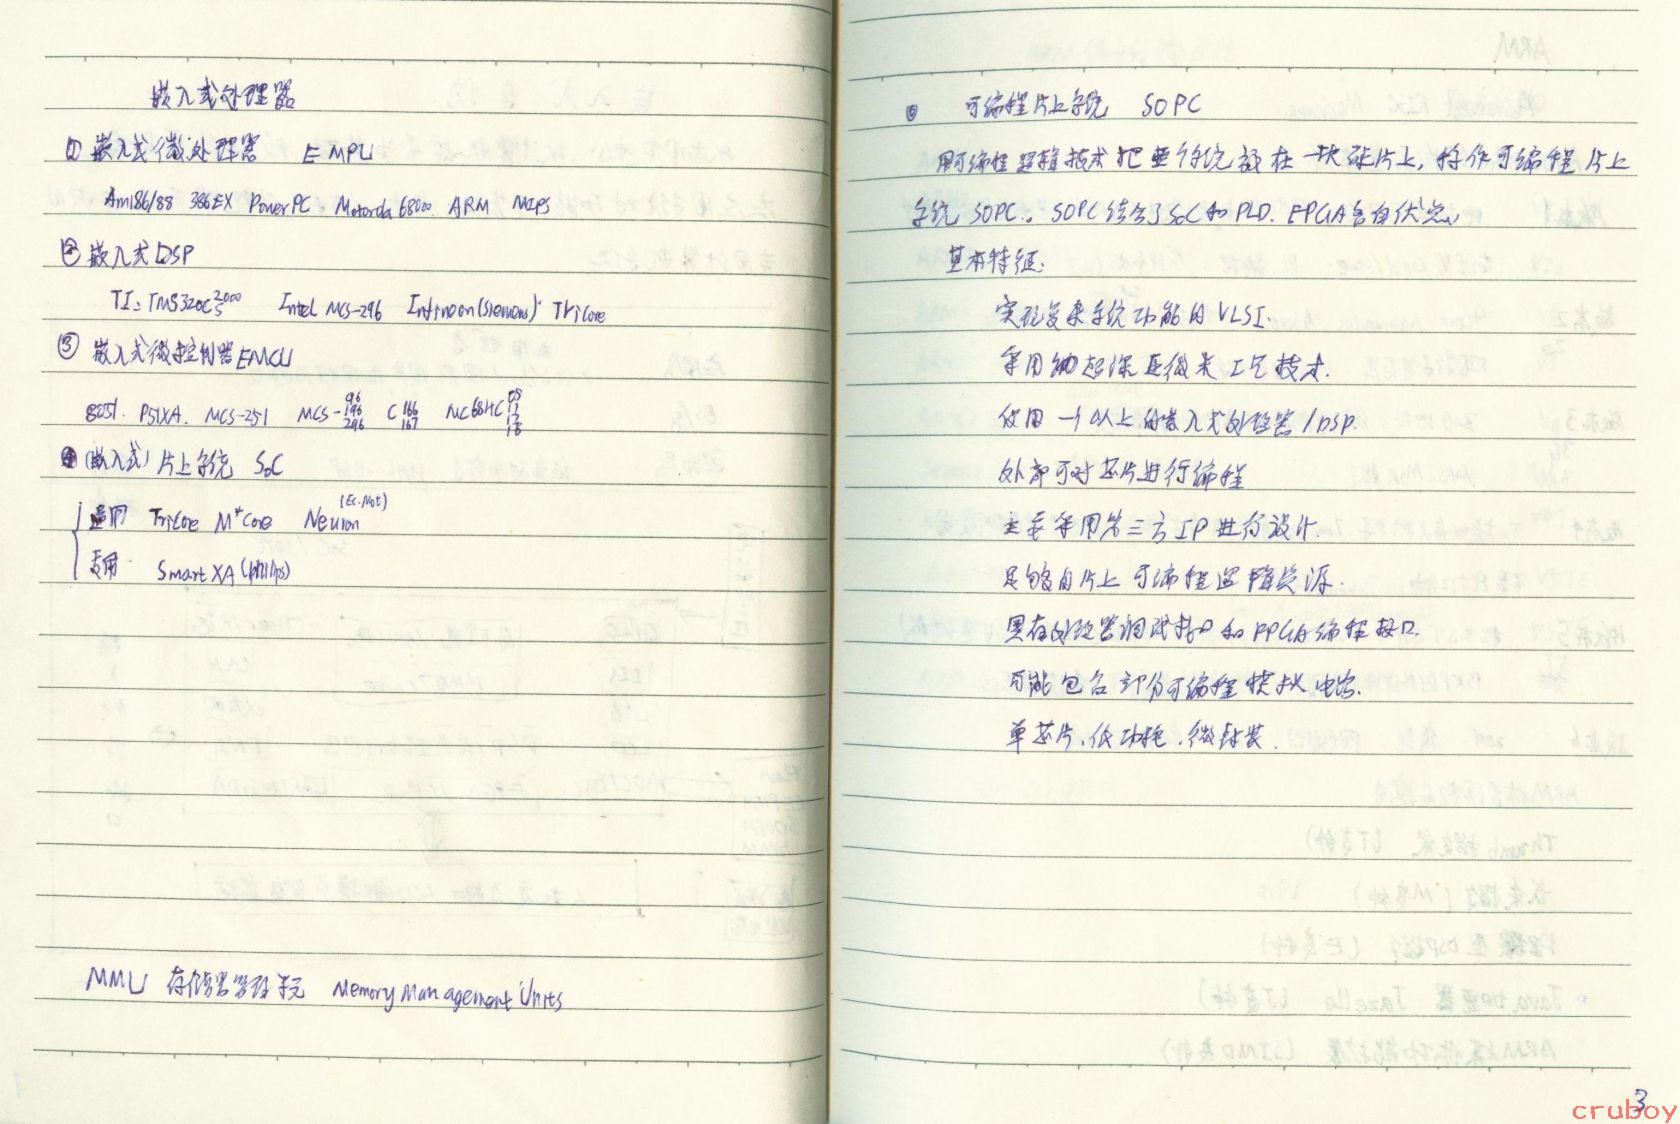 嵌入式处理器
① 嵌入式微处理器 EMPU
Am186/88 386EX PowerPC. Motorola 68000. ARM MIPS
② 嵌入式DSP
TI: TMS320C2000 5 Intel MCS-296 Infineon(Siemens): Tricore
③ 嵌入式微控制器 EMCU
8051. P51XA. MCS-251 MCS-96 196 296 C166 167 MC68HC05 11 12 16
④ (嵌入式) 片上系统 SoC
通用 Tricore M*Core Neuron (Ec.Not)
专用 Smart XA (philips)
MMU 存储器管理单元 Memory Management Units
可编程片上系统 SOPC
用可编程逻辑技术把整个系统放在一块硅片上,称作可编程片上
系统 SOPC。SOPC结合了SoC和PLD. FPGA各自优点。
基本特征:
实现复杂系统功能的VLSI.
采用的超深亚微米工艺技术.
使用一个以上的嵌入式处理器/DSP.
外部可对芯片进行编程
主要采用第三方IP进行设计.
足够的片上可编程逻辑资源.
具有处理器调试接口和FPGA编程接口.
可能包含部分可编程模拟电路.
单芯片,低功耗,微封装.
3
cruboy